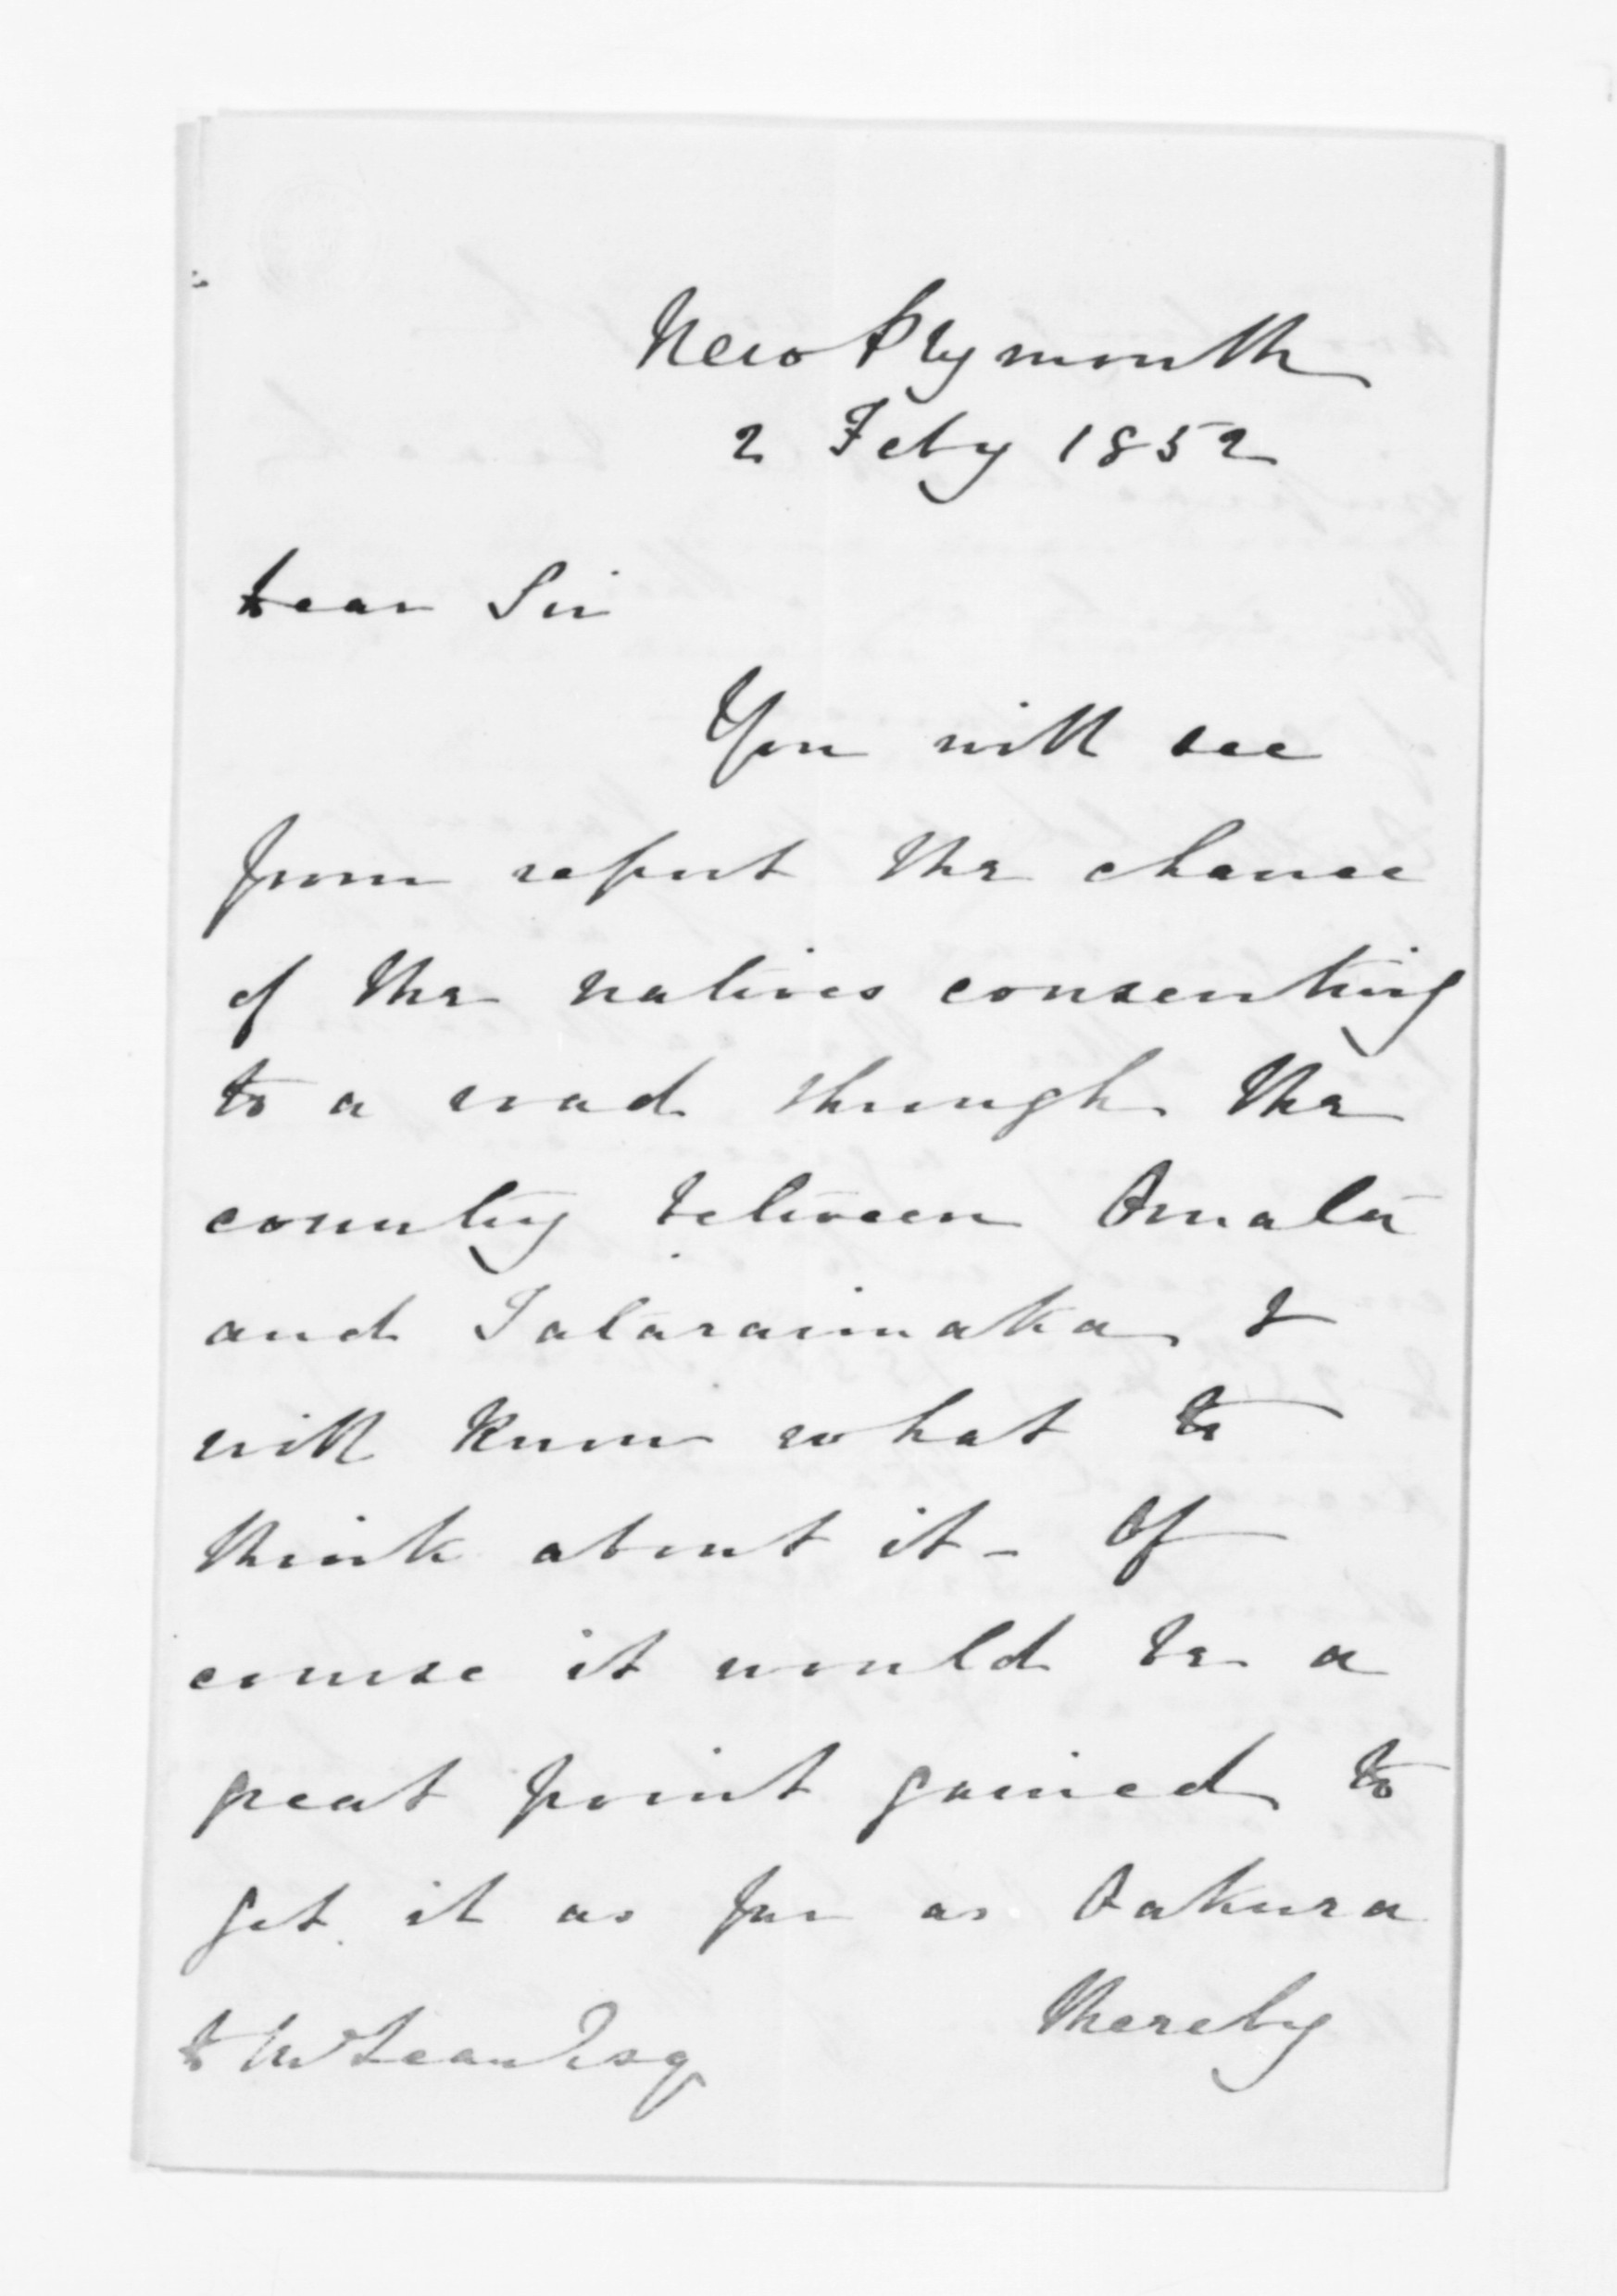 New Plymouth
2 Feby 1852
Dear Sir
You will see
from report the chance
of the natives consenting
to a road through the
country between Omata
and Tataraimaka &
will know what to
think about it - Of
course it would be a
great point gained to
get it as far as Oakura
thereby
D McLean Esq